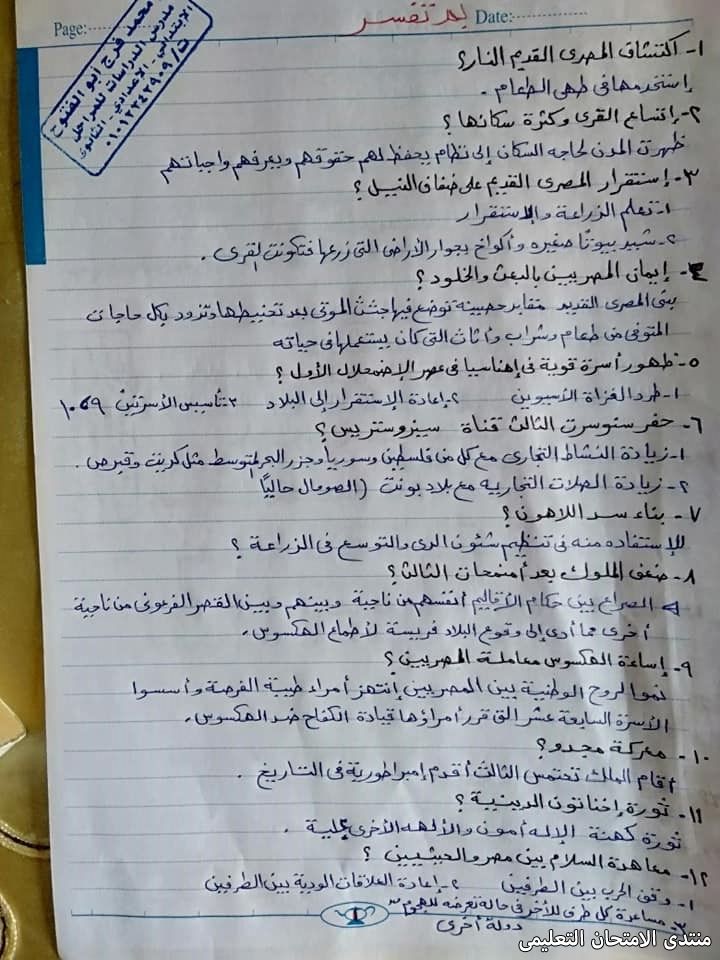 Page:
Date:
بم تفسر
محمد فرج ابو الفتوح
مدرس الدراسات للمراحل
الابتدائى - الاعدادى - الثانوى
ت / ٠١٠١٢٣٤٢٩٠٩
١- اكتشاف المصرى القديم النار؟
إستخدمها فى طهى الطعام .
٢- إتساع القرى وكثرة سكانها؟
ظهرت المدن لحاجه السكان إلى نظام يحفظ لهم حقوقهم ويعرفهم واجباتهم
٣- إستقرار المصرى القديم على ضفاف النيل؟
١- تعلم الزراعة والإستقرار
٢- شيد بيوتا صغيره وأكواخ بجوار الأراضى التى زرعها فتكونت القرى .
٤- إيمان المصريين بالبعث والخلود؟
بنى المصرى القديم مقابر حصينه توضع فيها جثث الموتى بعد تحنيطها وتزود بكل حاجات
المتوفى من طعام وشراب وأثاث التى كان يستعملها فى حياته
٥- ظهور أسرة قوية فى إهناسيا فى عصر الإضمحلال الأول؟
١- طرد الغزاة الأسيويين ٢- إعادة الإستقرار إلى البلاد ٣- تأسيس الأسرتين ٩ ، ١٠
٦- حفر سنوسرت الثالث قناة سيزوستريس؟
١- زيادة النشاط التجارى مع كل من فلسطين وسوريا وجزر البحر المتوسط مثل كريت وقبرص .
٢- زيادة الصلات التجاريه مع بلاد بونت (الصومال حاليًا)
٧- بناء سد اللاهون؟
للإستفاده منه فى تنظيم شئون الرى والتوسع فى الزراعة ؟
٨- ضعف الملوك بعد أمنمحات الثالث؟
الصراع بين حكام الأقاليم أنفسهم من ناحية وبينهم وبين القصر الفرعونى من ناحية
أخرى مما أدى إلى وقوع البلاد فريسة لأطماع الهكسوس .
٩- إساءة الهكسوس معاملة المصريين؟
نمو الروح الوطنية بين المصريين إنتهز أمراء طيبة الفرصة وأسسوا
الأسرة السابعة عشر التى قرر أمراؤها قيادة الكفاح ضد الهكسوس .
١٠- معركة مجدو؟
أقام الملك تحتمس الثالث أقدم إمبراطورية فى التاريخ .
١١- ثورة إخناتون الدينية؟
ثورة كهنة الإله أمون والألهه الأخرى عليه .
١٢- معاهدة السلام بين مصر والحيثيين ؟
١- وقف الحرب بين الطرفين ٢- إعادة العلاقات الودية بين الطرفين
٣- مساعدة كل طرف للأخر فى حالة تعرضه للهجوم من
دولة أخرى
منتدى الامتحان التعليمى